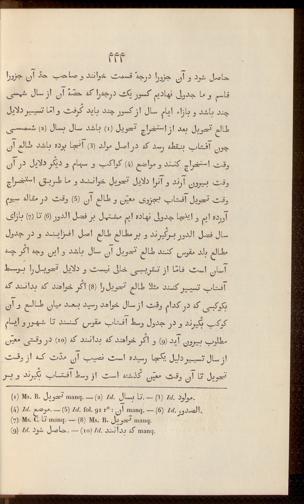 ۴۴۴
حاصل شود و آن جزورا درجهٔ قسمت خوانند و صاحب حدّ آن جزورا
قاسم و ما جدولی نهادیم کسور یک درجه‌را که حصّهٔ آن از سال شمسی
چند باشد و بازاء ایام سال از کسور چند باید گرفت و امّا تسییر دلایل
طالع تحویل بعد از استخراج تحویل (1) باشد سال بسال (2) شمسی
چون آفتاب بنقطه رسد که در اصل مولد (3) آنجا بوده باشد طالع آن
وقت استخراج کنند و مواضع (4) کواکب و سهام و دیگر دلایل در آن
وقت بیرون آرند و آنرا دلایل تحویل خوانند و ما طریق استخراج
وقت تحویل آفتاب بجزوی معیّن و طالع آن (5) وقت در مقاله سیوم
آورده ایم و اینجا جدولی نهاده ایم مشتمل بر فضل الدور (6) تا (7) بازای
سال فضل الدور برگیرند و بر مطالع طالع اصل افزایند و در جدول
مطالع بلد مقوس کنند طالع تحویل آن سال باشد و این وجه اگر چه
آسان است فامّا از تقریبی خالی نیست و دلایل تحویل‌را بوسط
آفتاب تسییر کنند مثلا طالع تحویل‌را (8) اگر خواهند که بدانند که
بکوکبی که در کدام وقت از سال خواهد رسید بعد میان طالع و آن
کوکب بگیرند و در جدول وسط آفتاب مقوس کنند تا شهور و ایام
مطلوب بیرون آید (9) و اگر خواهند که بدانند که (10) در وقتی معیّن
از سال تسییر دلیل بکجا رسیده است نصیب آن مدّت که از وقت
تحویل تا آن وقت معیّن گذشته است از وسط آفتاب بگیرند و بر
(1) Ms. B. تحویل manq. — (2) Id. تا بسال. — (3) Id. مولود.
(4) Id. موضع. — (5) Id. fol. 92 r°: آن manq. — (6) Id. الصدور.
(7) Ms. C. تا manq. — (8) Ms. B. تحویل manq.
(9) Id. حاصل شود. — (10) Id. که بدانند manq.